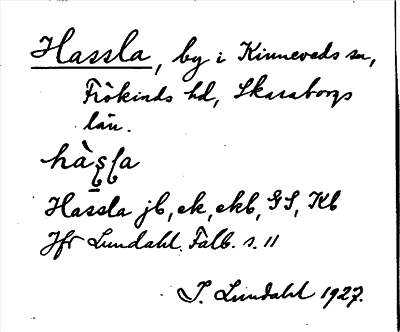 Hassla, by i Kinneveds sn,
Frökinds hd, Skaraborgs
län.
Hassla jb, ek, ekb, GS, Kb
Jfr Lundahl. Falb. s. 11
I. Lundahl 1927.